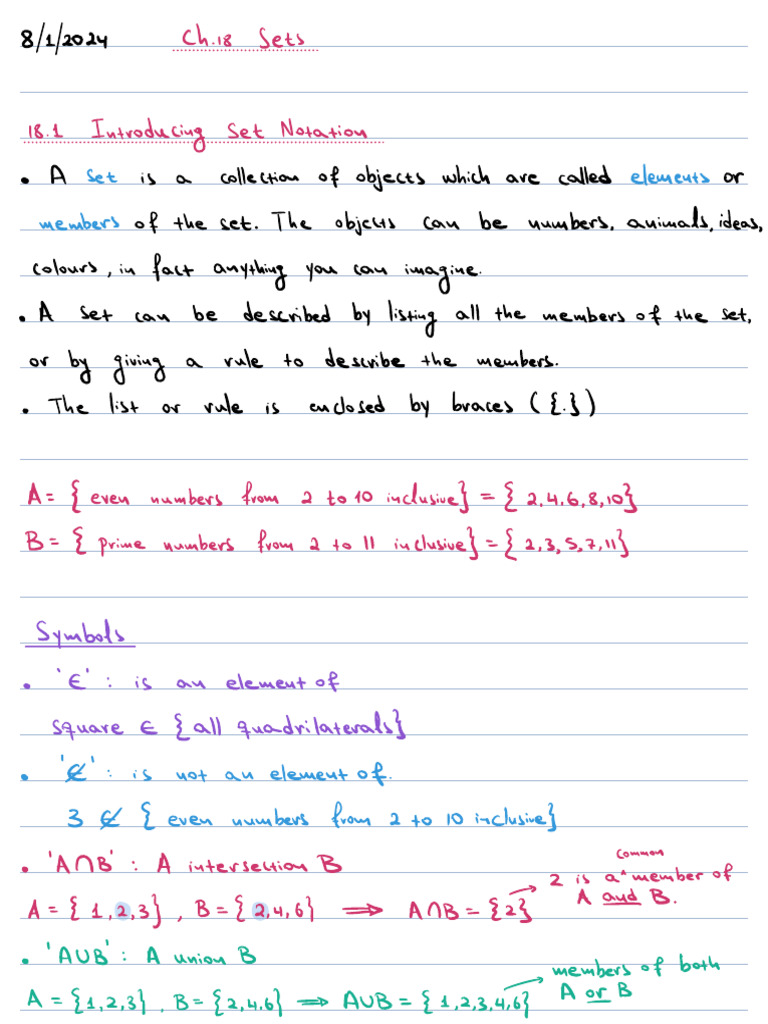 8/1/2024 Ch.18 Sets
18.1 Introducing Set Notation
• A set is a collection of objects which are called elements or
members of the set. The objects can be numbers, animals, ideas,
colours, in fact anything you can imagine.
• A set can be described by listing all the members of the set,
or by giving a rule to describe the members.
• The list or rule is enclosed by braces ({.})
A = { even numbers from 2 to 10 inclusive} = { 2,4,6,8,10}
B = { prime numbers from 2 to 11 inclusive} = { 2,3,5,7,11}
Symbols
• '∈' : is an element of
square ∈ {all quadrilaterals}
• '∉' : is not an element of.
3 ∉ { even numbers from 2 to 10 inclusive}
• 'A∩B' : A intersection B
common
2 is a member of
A and B.
A = { 1,2,3} , B = { 2,4,6} ⟹ A∩B = {2}
• 'A∪B' : A union B
members of both
A or B
A = {1,2,3} , B = {2,4,6} ⟹ A∪B = { 1,2,3,4,6}